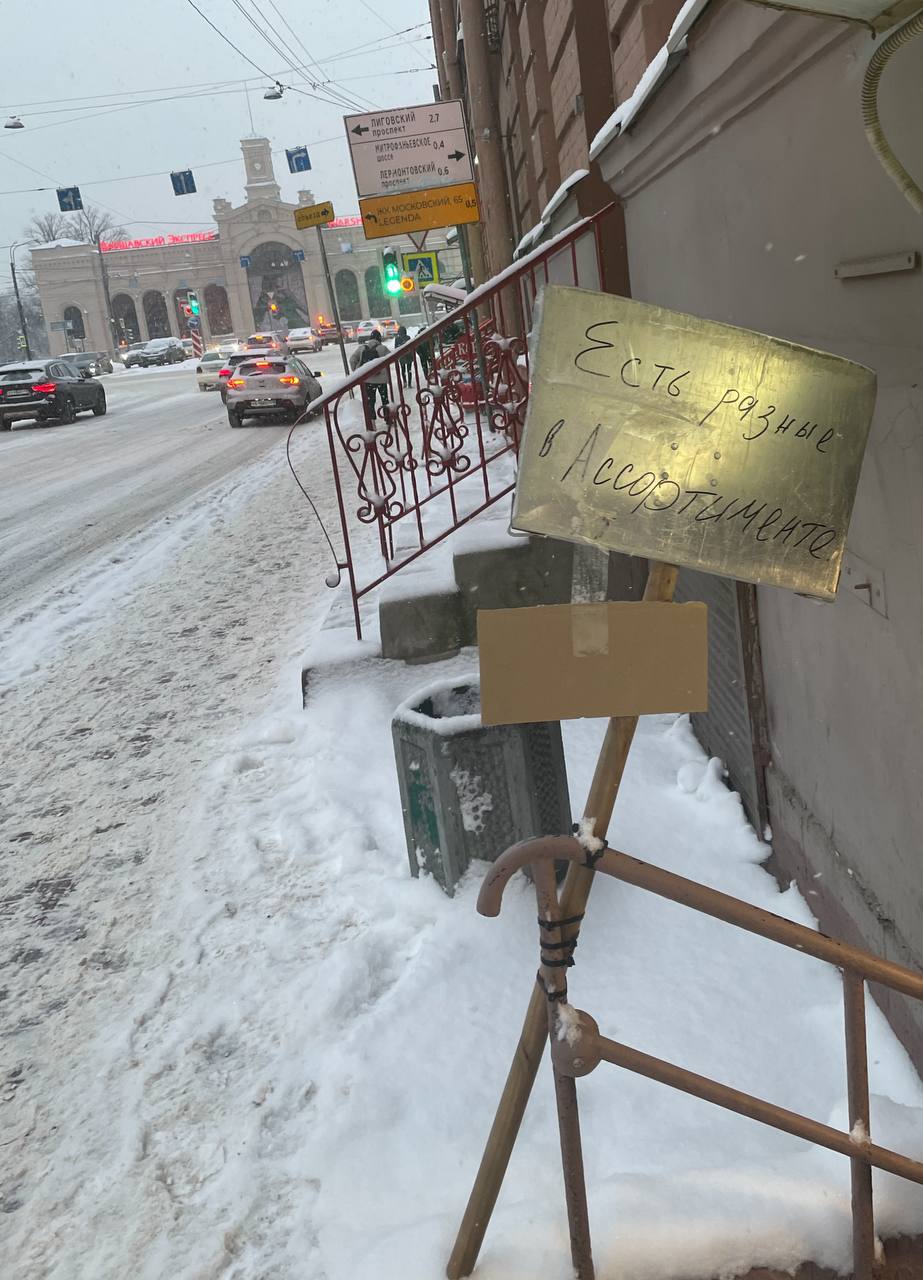 ЛИГОВСКИЙ 2.7
проспект
МИТРОФАНЬЕВСКОЕ 0.4
шоссе
ЛЕРМОНТОВСКИЙ 0.6
проспект
ЖК МОСКОВСКИЙ, 65 0,5
LEGENDA
ВАРШАВСКИЙ ЭКСПРЕСС
WARSH
Есть разные
в Ассортименте